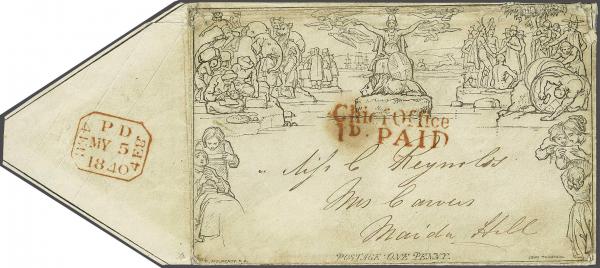 P D
MY 5
1840
Chief Office
1D. PAID
Miss C Reynolds
Mrs Carvers
Maida Hill
POSTAGE ONE PENNY.